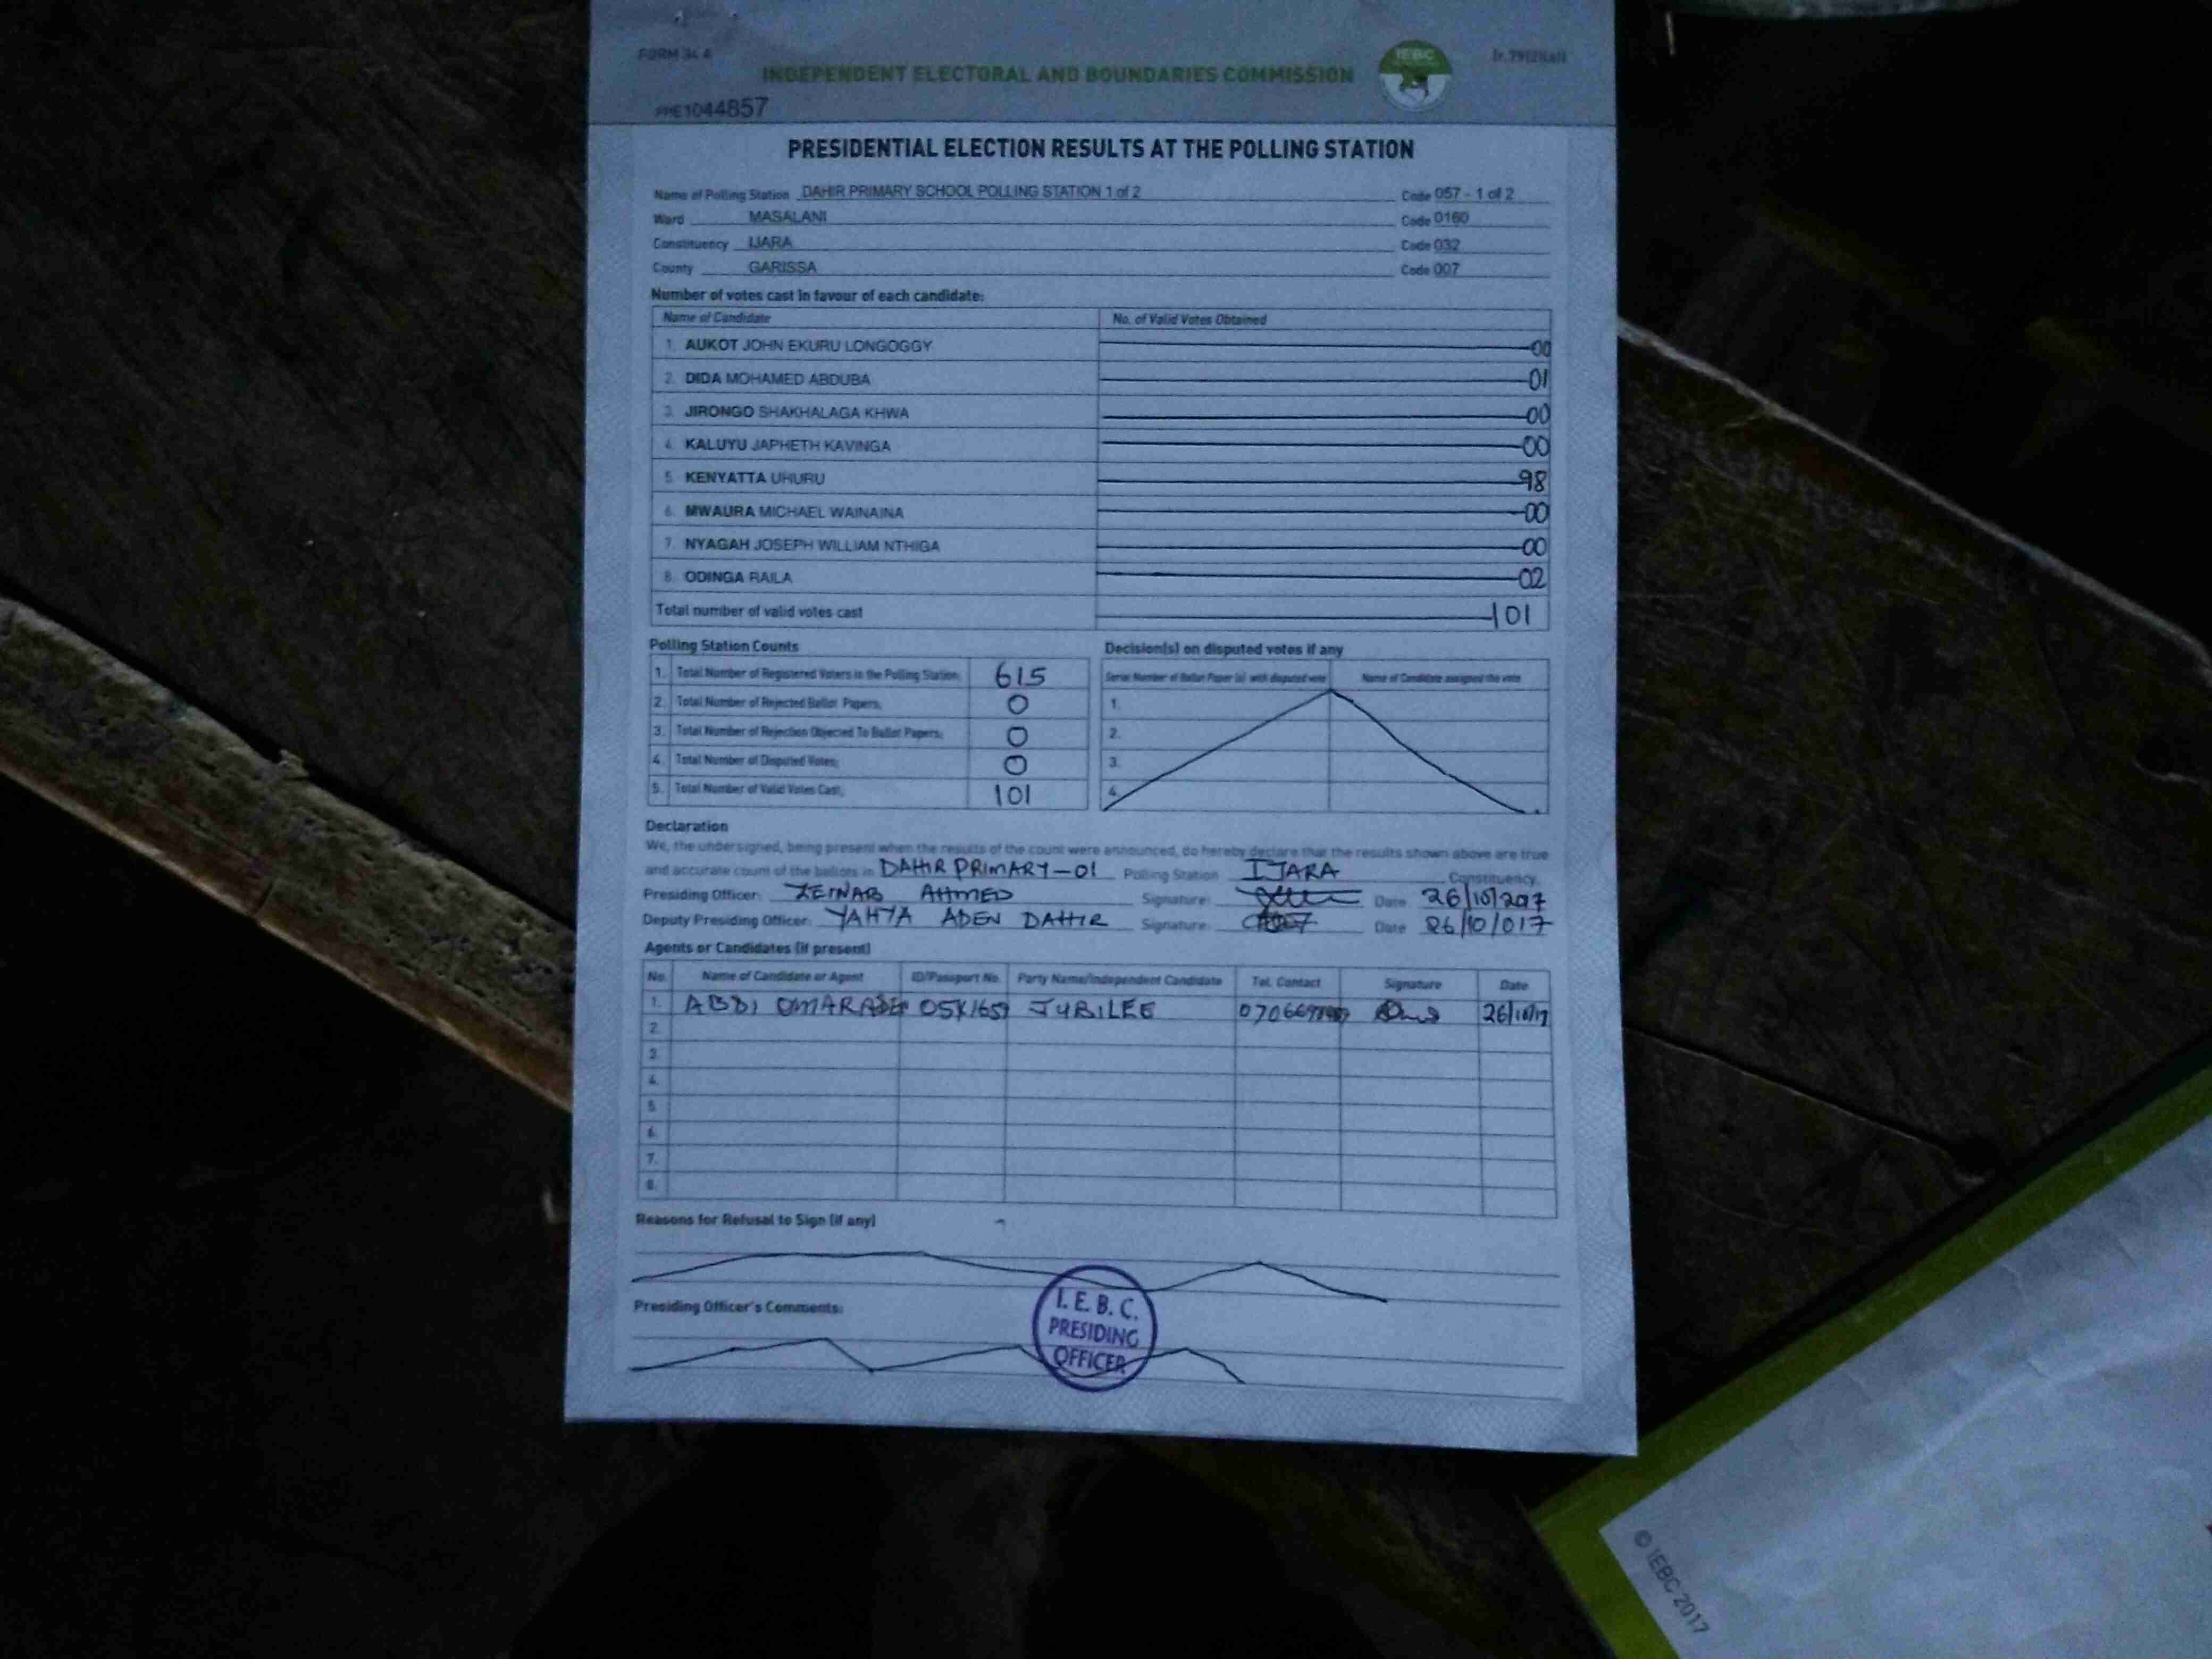 FORM 34 A
INDEPENDENT ELECTORAL AND BOUNDARIES COMMISSION
IEBC
PHE1044857
PRESIDENTIAL ELECTION RESULTS AT THE POLLING STATION
Name of Polling Station DAHIR PRIMARY SCHOOL POLLING STATION 1 of 2 Code 057 - 1 of 2
Ward MASALANI Code 0160
Constituency IJARA Code 032
County GARISSA Code 007
Number of votes cast in favour of each candidate:
Name of Candidate No. of Valid Votes Obtained
1. AUKOT JOHN EKURU LONGOGGY 00
2. DIDA MOHAMED ABDUBA 01
3. JIRONGO SHAKHALAGA KHWA 00
4. KALUYU JAPHETH KAVINGA 00
5. KENYATTA UHURU 98
6. MWAURA MICHAEL WAINAINA 00
7. NYAGAH JOSEPH WILLIAM NTHIGA 00
8. ODINGA RAILA 02
Total number of valid votes cast 101
Polling Station Counts
1. Total Number of Registered Voters in the Polling Station; 615
2. Total Number of Rejected Ballot Papers; 0
3. Total Number of Rejection Objected To Ballot Papers; 0
4. Total Number of Disputed Votes; 0
5. Total Number of Valid Votes Cast; 101
Decision(s) on disputed votes if any
Serial Number of Ballot Paper (s) with disputed vote Name of Candidate assigned the vote
1.
2.
3.
4.
Declaration
We, the undersigned, being present when the results of the count were announced, do hereby declare that the results shown above are true
and accurate count of the ballots in DAHIR PRIMARY-01 Polling Station IJARA Constituency.
Presiding Officer: ZEINAB AHMED Signature: Date 26/10/2017
Deputy Presiding Officer: YAHYA ADEN DAHIR Signature: Date 26/10/017
Agents or Candidates (if present)
No. Name of Candidate or Agent ID/Passport No. Party Name/Independent Candidate Tel. Contact Signature Date
1. ABDI OMAR ADEN JUBILEE 26/10/17
2.
3.
4.
5.
6.
7.
8.
Reasons for Refusal to Sign (if any)
Presiding Officer's Comments:
I.E.B.C.
PRESIDING
OFFICER
© IEBC 2017